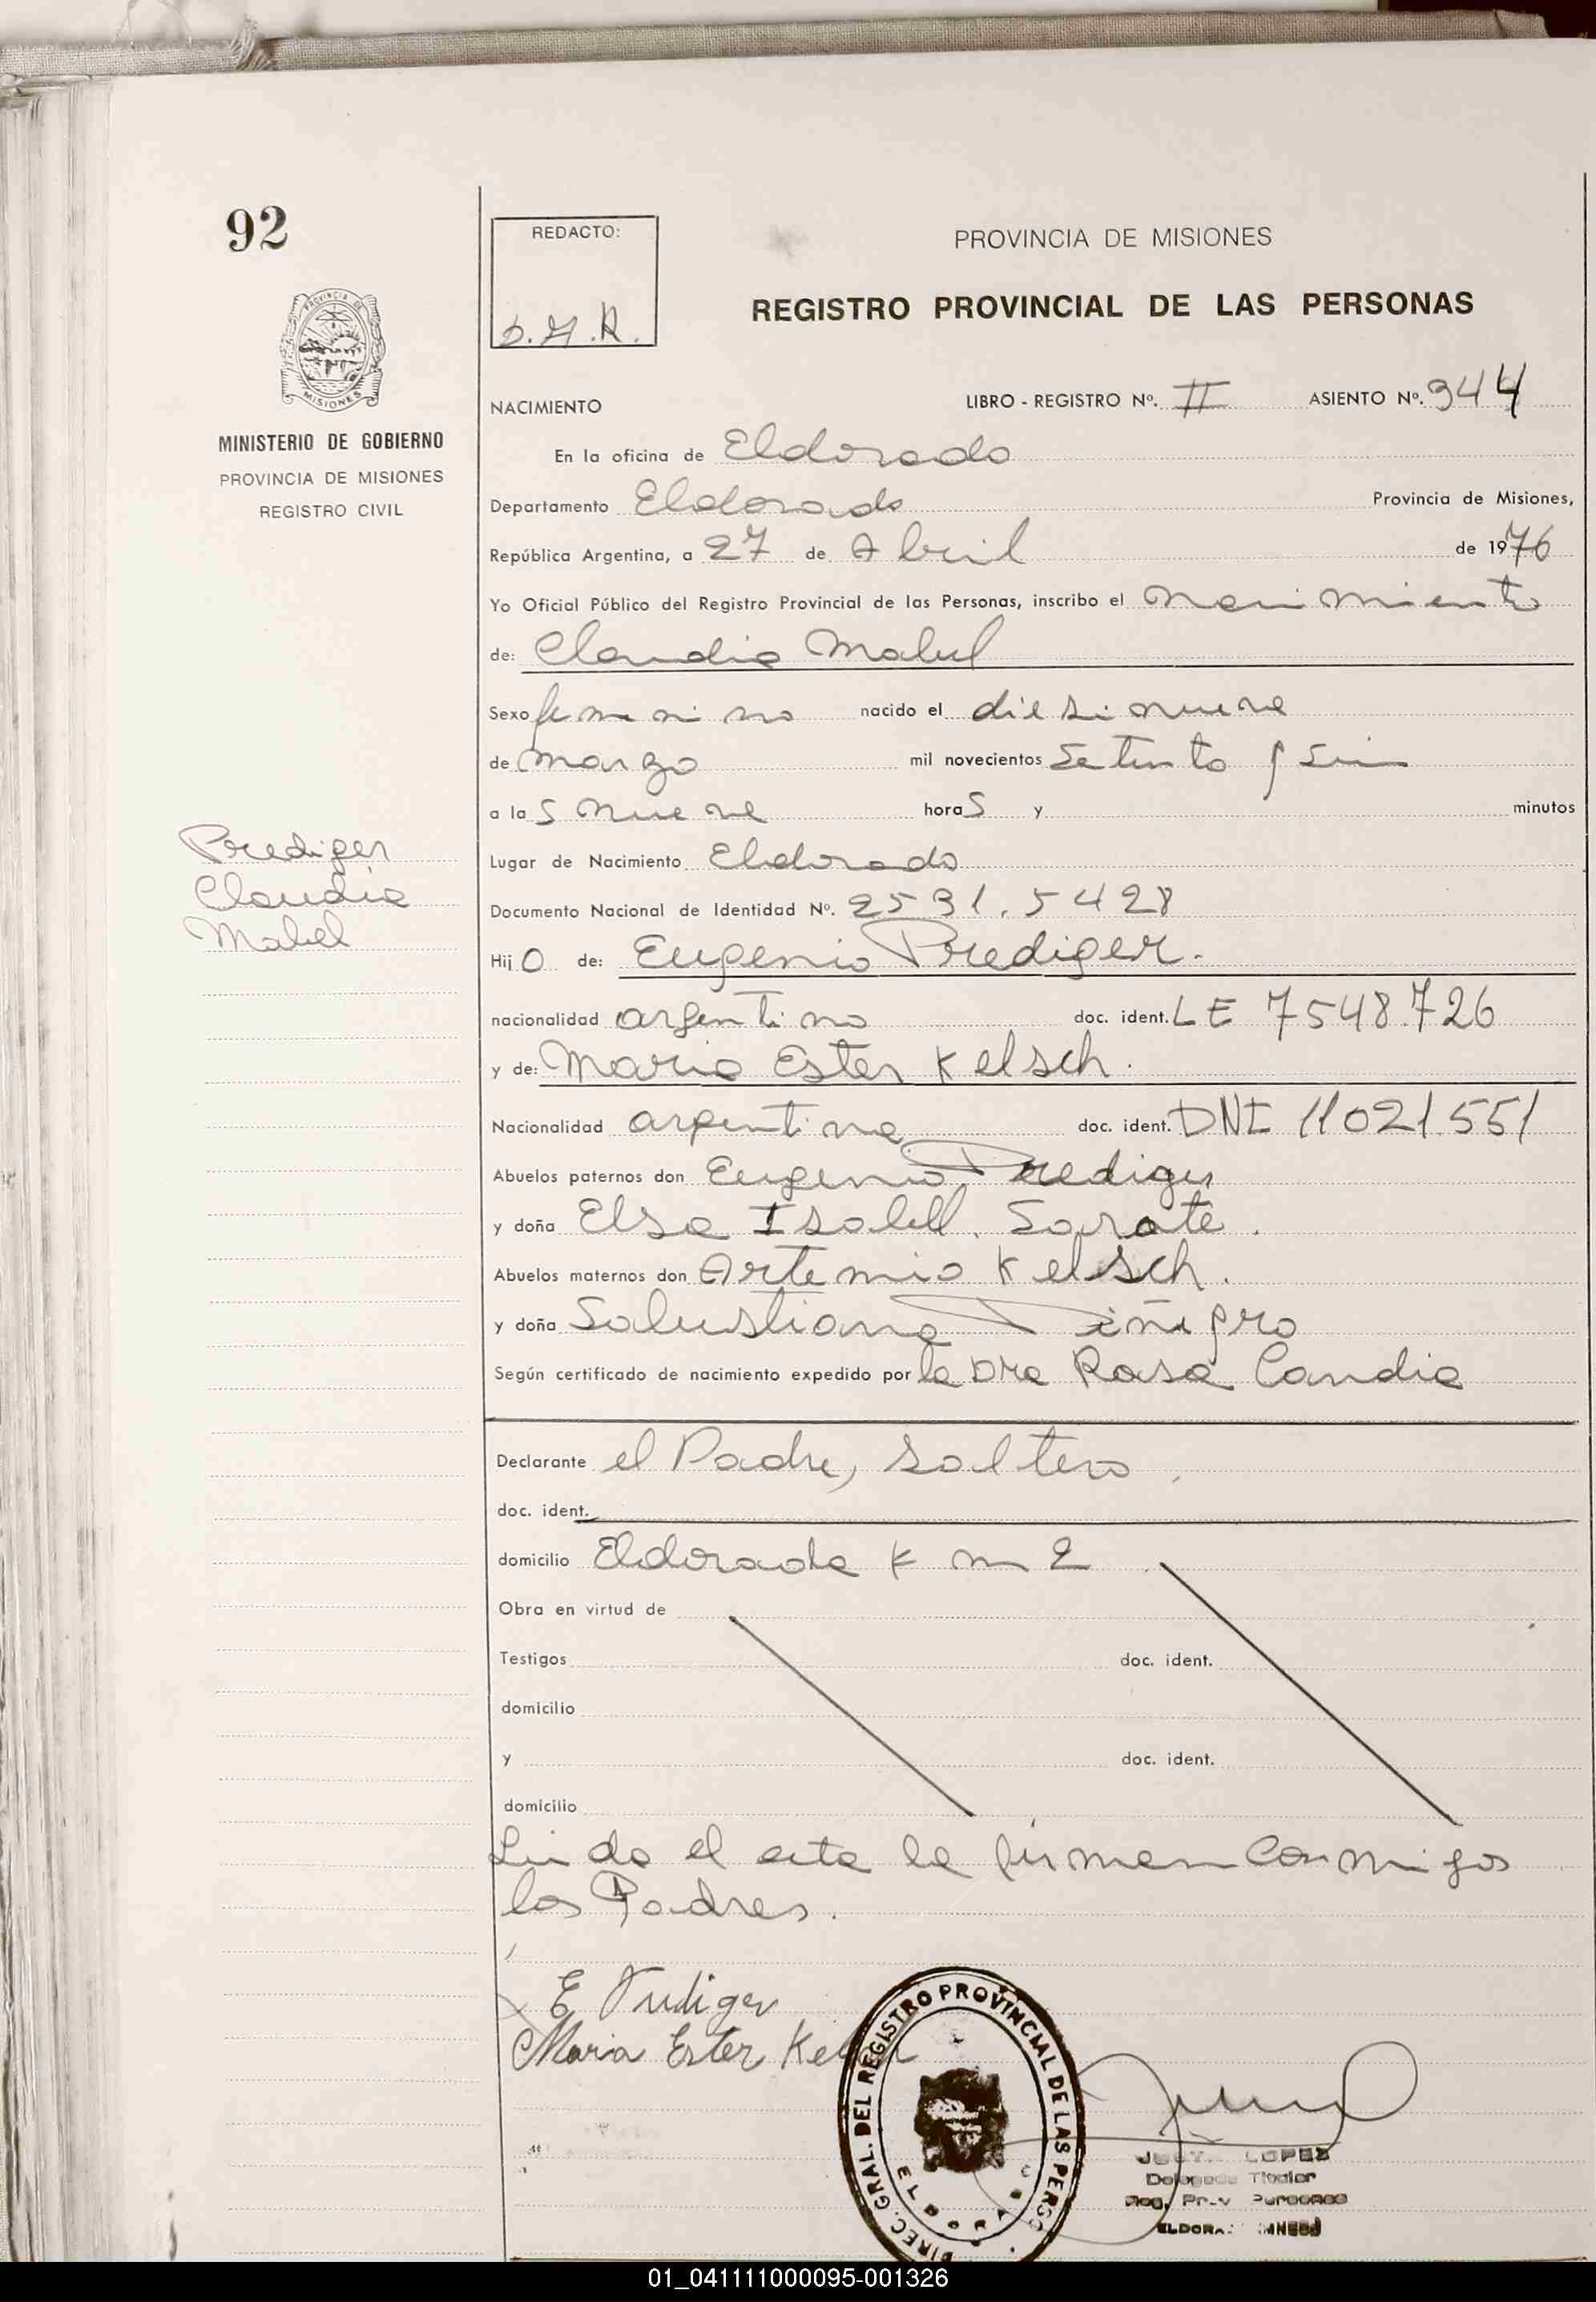 92
REDACTO:
D.M.R.
PROVINCIA DE MISIONES
REGISTRO PROVINCIAL DE LAS PERSONAS
MINISTERIO DE GOBIERNO
PROVINCIA DE MISIONES
REGISTRO CIVIL
NACIMIENTO LIBRO - REGISTRO Nº. II ASIENTO Nº. 944
En la oficina de Eldorado
Departamento Eldorado Provincia de Misiones,
República Argentina, a 27 de Abril de 1976
Yo Oficial Público del Registro Provincial de las Personas, inscribo el Nacimiento
de: Claudia Mabel
Sexo femenino nacido el diesinueve
de Marzo mil novecientos Setenta y Seis
a las nueve horas y minutos
Prediger
Claudia
Mabel
Lugar de Nacimiento Eldorado
Documento Nacional de Identidad Nº. 2591.5428
Hijo de: Eugenio Prediger.
nacionalidad argentino doc. ident. LE 7548.726
y de: Maria Ester Kelsch.
Nacionalidad argentina doc. ident. DNI 11021.551
Abuelos paternos don Eugenio Prediger
y doña Elsa Isabell. Sarate.
Abuelos maternos don Artemio Kelsch.
y doña Salustiana
Según certificado de nacimiento expedido por la Dra Rosa Candia
Declarante el Padre, soltero,
doc. ident.
domicilio Eldorado Km 2
Obra en virtud de
Testigos doc. ident.
domicilio
y doc. ident.
domicilio
Leida el acta la firman conmigo
los Padres.
E Prediger
Maria Ester Kelsch
DIREC. GRAL. DEL REGISTRO PROVINCIAL DE LAS PERSO
ELDORADO
LOPEZ
Delegada Titular
Reg. Prov Personas
01_041111000095-001326